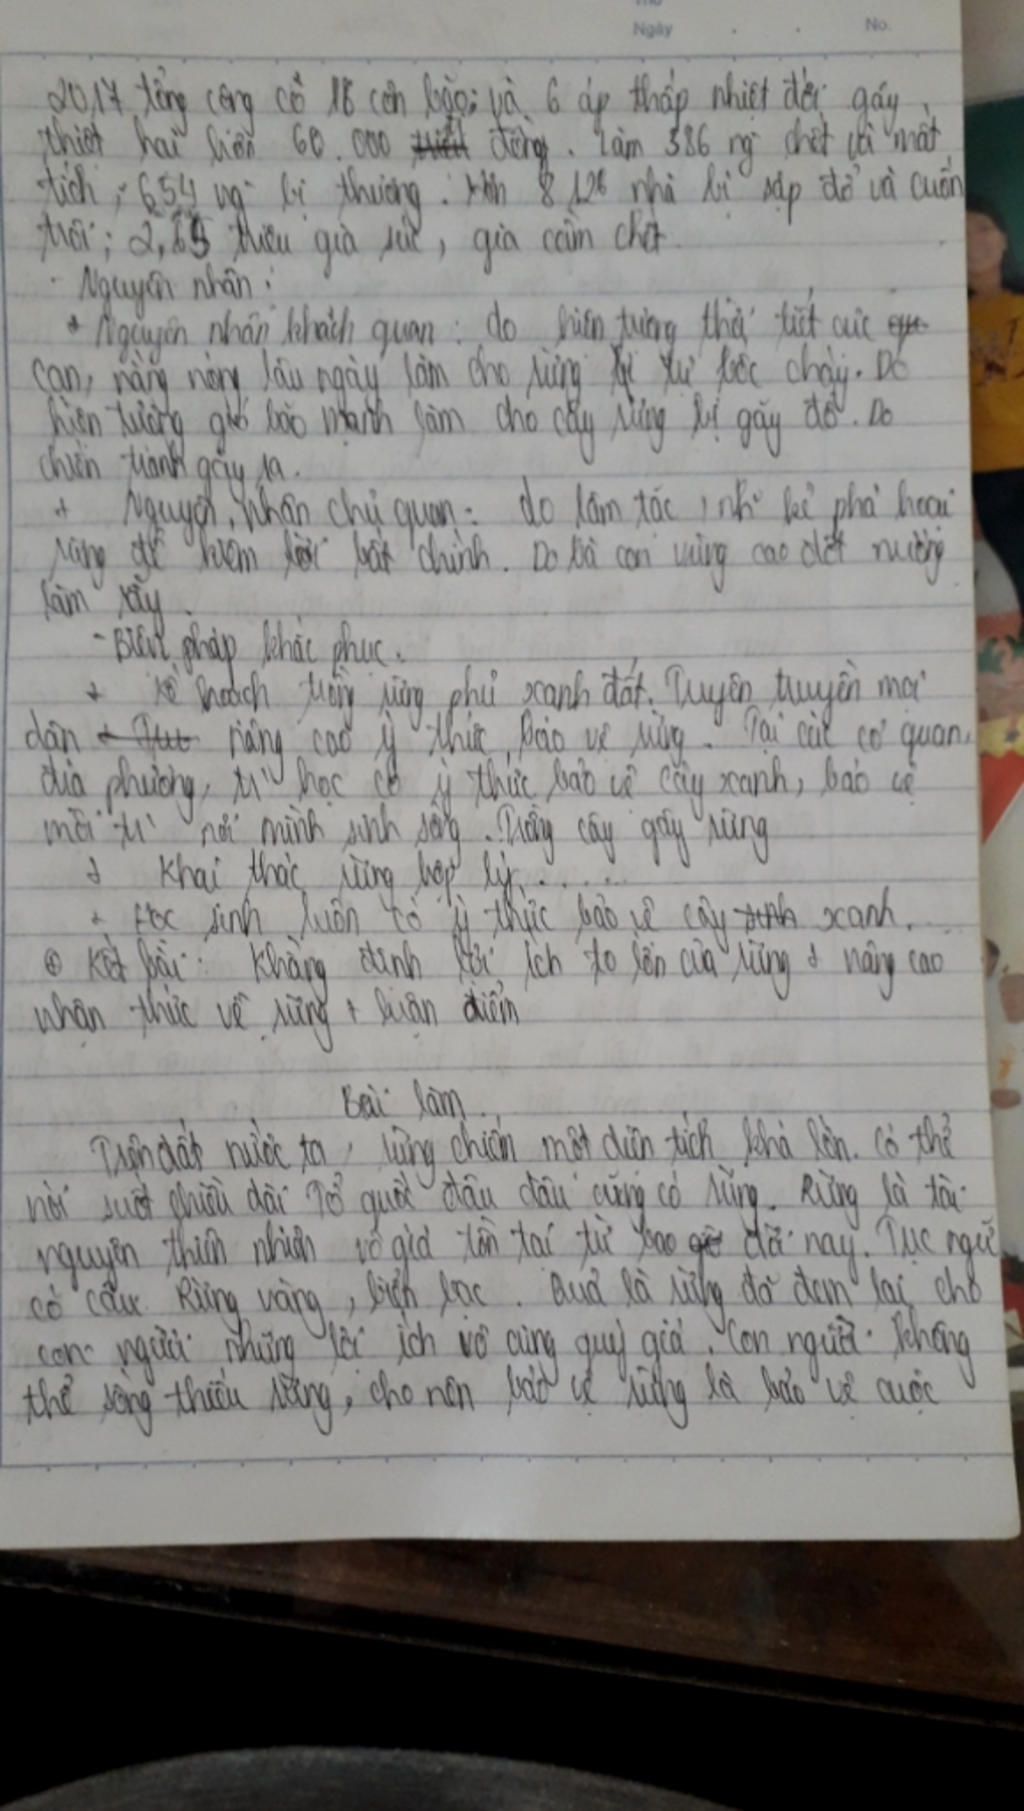 Ngày . . No.
2017 tổng cộng có 16 cơn bão; và 6 áp thấp nhiệt đới gây
thiệt hại hơn 60.000 đồng. Làm 386 ng chết và mất
tích; 654 ng bị thương. Hơn 8 126 nhà bị sập đổ và cuốn
trôi; 2,65 triệu gia súc, gia cầm chết.
- Nguyên nhân:
+ Nguyên nhân khách quan: do hiện tượng thời tiết cực
cạn, nắng nóng lâu ngày làm cho rừng bị tự bốc cháy. Do
hiện tượng gió bão mạnh làm cho cây rừng bị gãy đổ. Do
chiến tranh gây ra.
+ Nguyên nhân chủ quan: do lâm tặc, nh~ kẻ phá hoại
rừng để kiếm lời bất chính. Do bà con vùng cao đốt nương
làm rẫy.
- Biện pháp khắc phục.
+ Kế hoạch trồng rừng phủ xanh đất. Tuyên truyền mọi
dân nâng cao ý thức bảo vệ rừng. Tại các cơ quan,
địa phương, tr` học có ý thức bảo vệ cây xanh, bảo vệ
môi tr` nơi mình sinh sống. Trồng cây gây rừng
+ Khai thác rừng hợp lý.....
+ Học sinh luôn có ý thức bảo vệ cây xanh.
⊕ Kết bài: Khẳng định lợi ích to lớn của rừng + nâng cao
nhận thức về rừng + luận điểm
Bài làm
Trên đất nước ta, rừng chiếm một diện tích khá lớn. Có thể
nói suốt chiều dài Tổ quốc đâu đâu cũng có rừng. Rừng là tài
nguyên thiên nhiên vô giá tồn tại từ bao đời nay. Tục ngữ
có câu: Rừng vàng, biển bạc. Quả là rừng đã đem lại cho
con người những lợi ích vô cùng quý giá. Con người không
thể sống thiếu rừng, cho nên bảo vệ rừng là bảo vệ cuộc